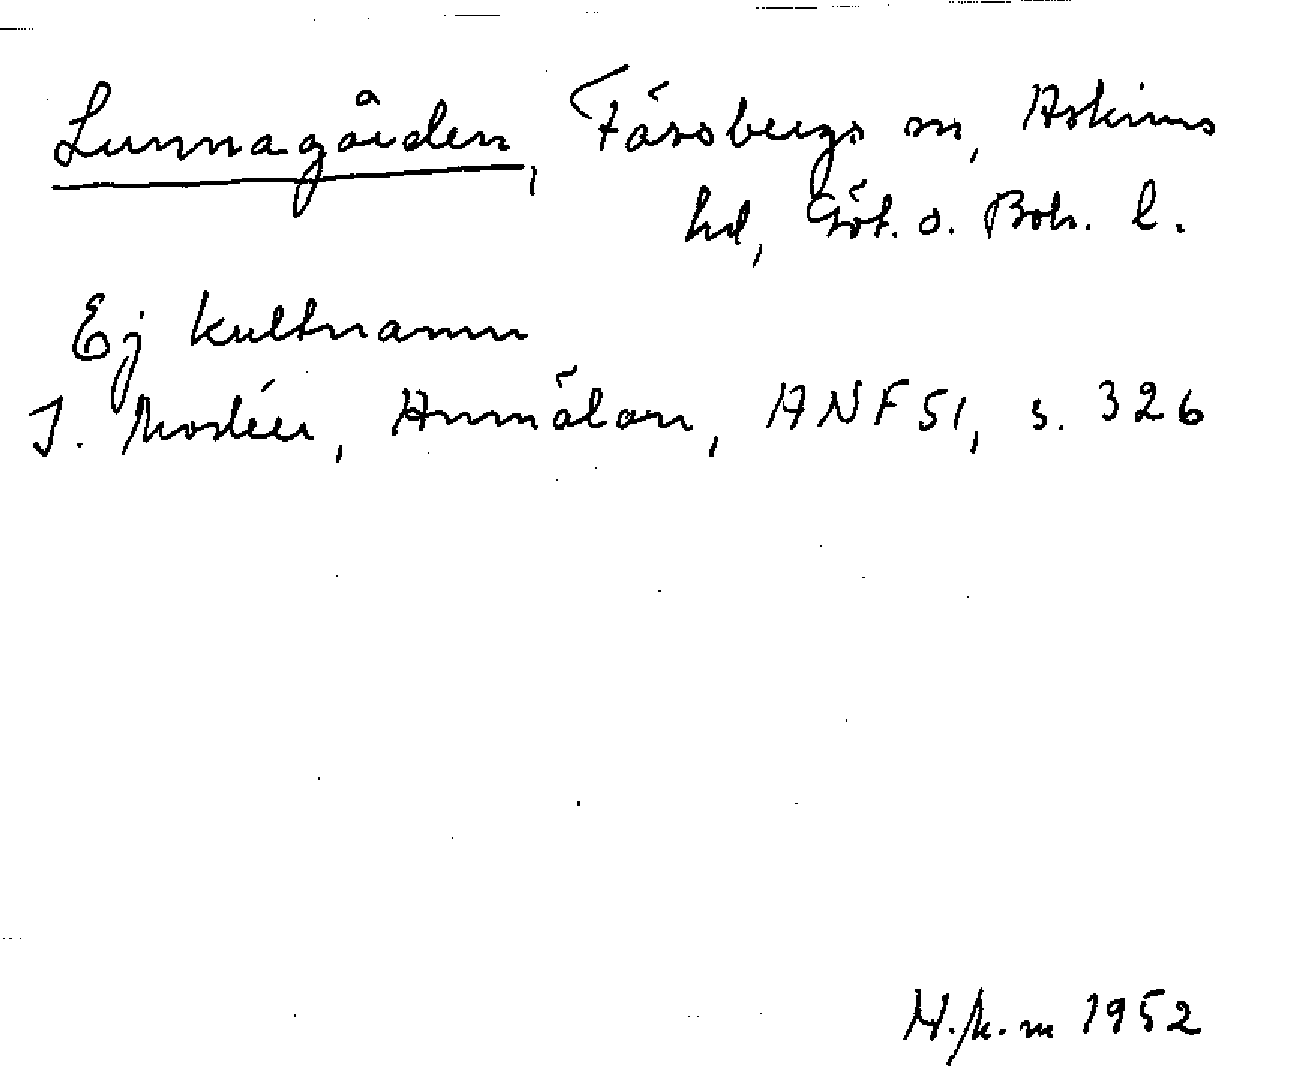 Lunnagården, Fässbergs sn, Askims
hd, Göt. o. Boh. l.
Ej kultnamn
I. Modéer, Anmälan, ANF 51, s. 326
1952